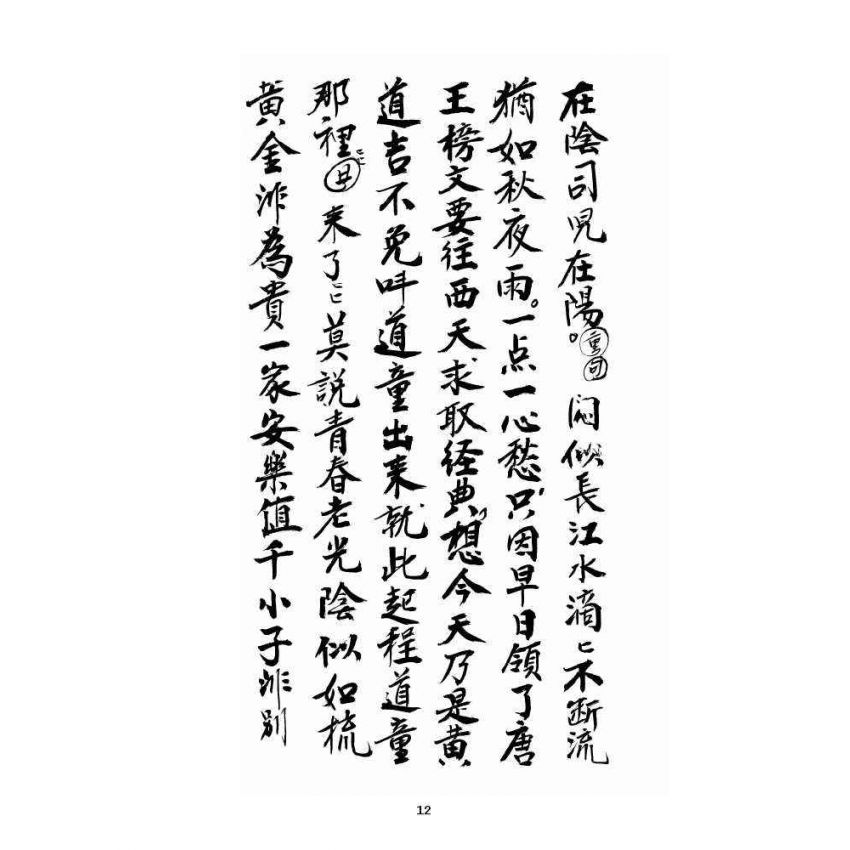 在陰司児在陽。㊂ 悶似長江水滴匕不断流
猶如秋夜雨。一点一心愁只因早日領了唐
王榜文要往西天求取经典，想今天乃是黄
道吉不免叫道童出来就此起程道童
那裡匕匕丑来了匕匕莫說青春老光陰似如梳
黄金沠為貴一家安樂值千小子沠别
12